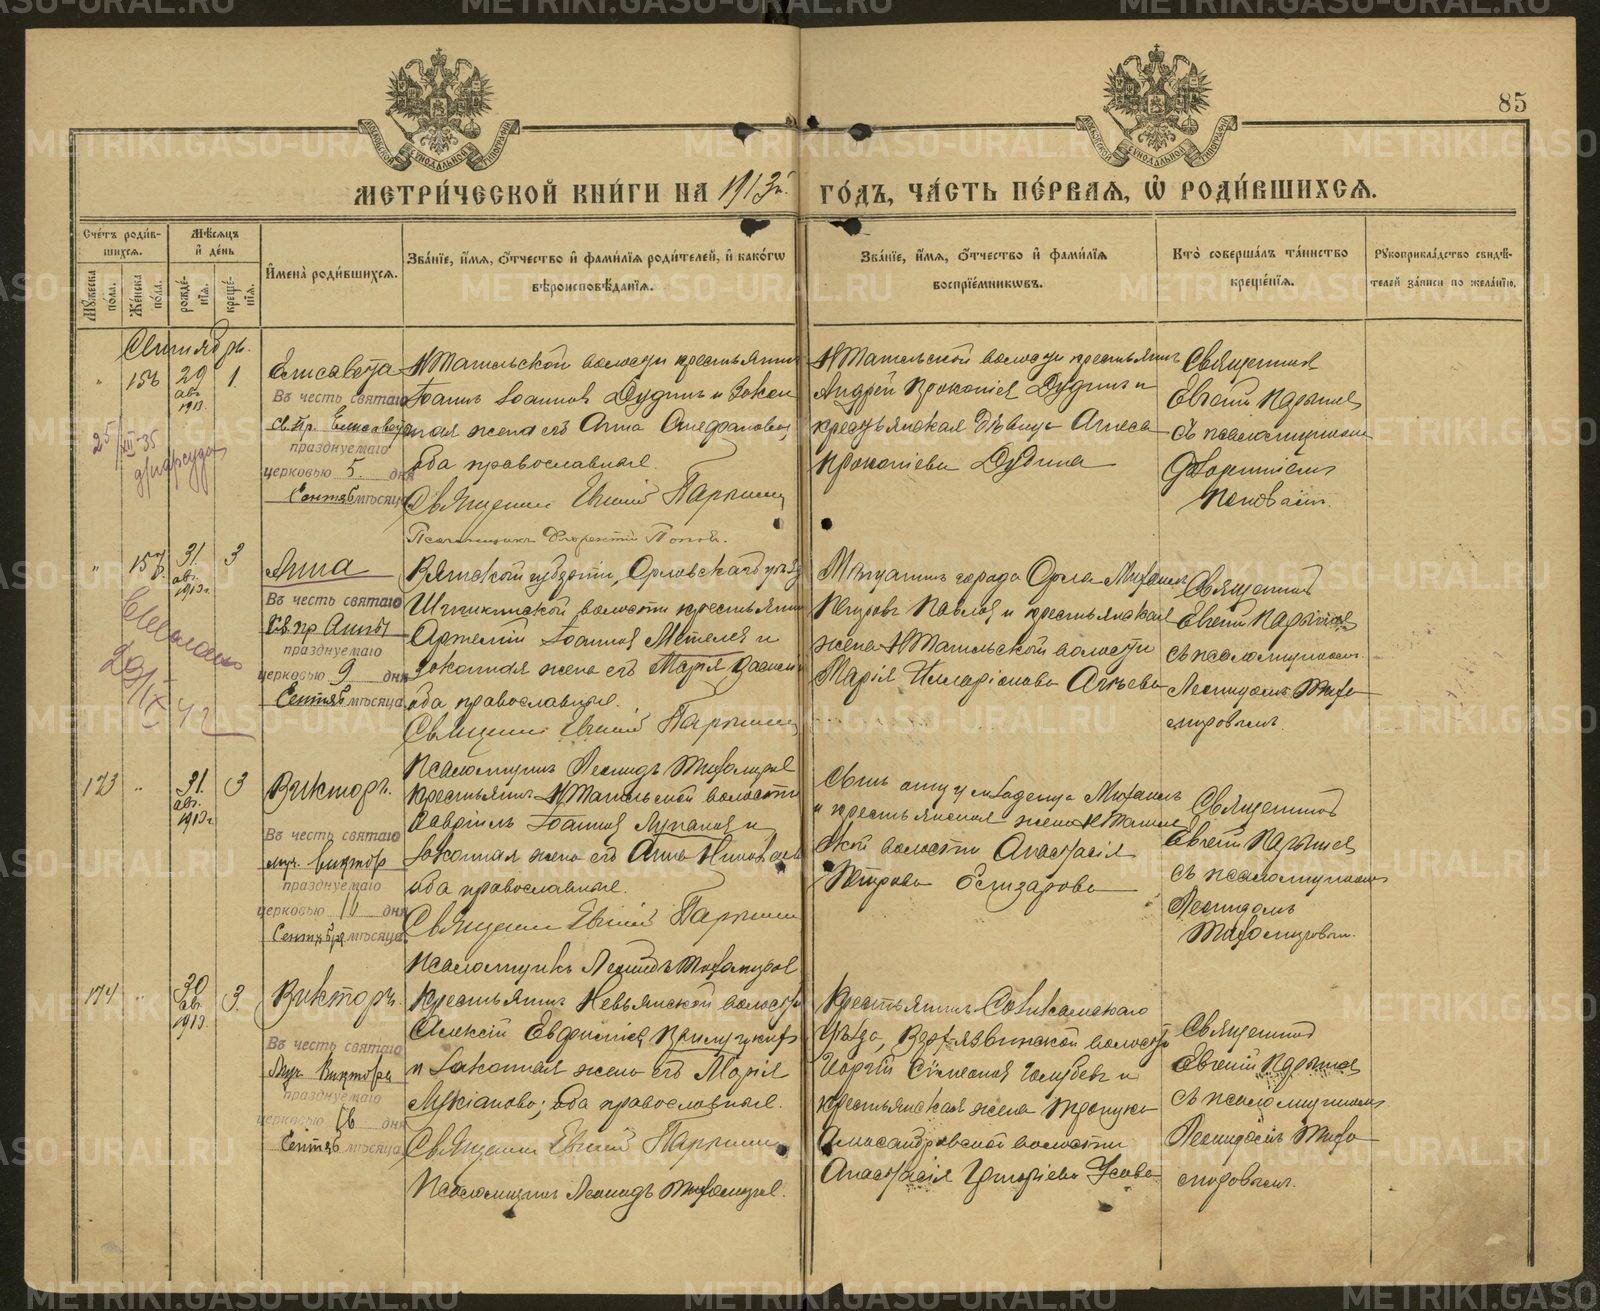 85
МЕТРИ́ЧЕСКОЙ КНИ́ГИ НА 1913й. ГО́ДЪ, ЧА́СТЬ ПЕ́РВАЯ, Ѡ РОДИ́ВШИХСЯ.
Сче́тъ роди́вшихся.
Мѣ́сяцъ и де́нь
Мꙋ́жеска по́ла.
Же́нска по́ла.
рожде́нїя.
креще́нїя.
И́мена̀ роди́вшихся.
Зва́нїе, и́мя, о́тчество и фами́лїя роди́телей, и како́гѡ вѣроисповѣ́данїя.
Зва́нїе, и́мя, о́тчество и фами́лїя воспрїе́мникѡвъ.
Кто̀ соверша́лъ та́инство креще́нїя.
Рꙋкоприкла́дство свидѣ́телей за́писи по жела́нїю.
Сентябрь.
" 156 29 авг. 1913. 1.
Елисавета
Въ честь святаго
св. пр. Елисаветы
празднуемаго
церковью 5. дня
Сентяб мѣсяца
25/XII-35
Н Тагильской волости крестьянинъ
Іоаннъ Іоанновъ Дудинъ и закон
ная жена его Анна Стефановна,
оба православные.
Священникъ Евгеній
Псаломщикъ Флорентій Поповъ.
Н Тагильской волости крестьянинъ
Андрей Прокопіев Дудинъ и
крестьянская дѣвица
Прокопіева Дудина
Священникъ
Евгеній
съ псаломщикомъ
Флорентіемъ
Поповымъ.
" 157 31. авг. 1913г. 3
Анна
Въ честь святаго
св. пр Анны
празднуемаго
церковью 9 дня
Сентяб мѣсяца
29/IX 42
Вятской губерніи, Орловскаго уѣзд
волости крестьянинъ
Артемій Іоанновъ Метелевъ и
законная жена его Марія
оба православные.
Священникъ Евгеній
Псаломщикъ Леонидъ Тихомировъ
Мѣщанинъ города Орла Михаилъ
Петровъ Павловъ и крестьянская
жена Н Тагильской волости
Марія Илларіонова
Священникъ
Евгеній
съ псаломщикомъ
Леонидомъ Тихо
мировымъ.
173 " 31. авг. 1913г 3
Викторъ.
Въ честь святаго
муч. Виктор
празднуемаго
церковью 16 дня
Сентября мѣсяца
Крестьянинъ Н Тагильской волости
Гавріилъ Іоанновъ Лупановъ и
законная жена его Анна
оба православные.
Священникъ Евгеній
Псаломщикъ Леонидъ Тихомировъ
Сынъ отцу младенца Михаилъ
и крестьянская жена Н Тагиль
ской волости Анастасія
Петрова Елизарова
Священникъ
Евгеній
съ псаломщикомъ
Леонидомъ
Тихомировым.
174 " 30 авг. 1913. 3.
Викторъ.
Въ честь святаго
Муч. Виктора
празднуемаго
церковью 16 дня
Сентяб мѣсяца
Крестьянинъ Невьянской волости
Алексій
и законная жена его Марія
оба православные.
Священникъ Евгеній
Псаломщикъ Леонидъ Тихомировъ.
Крестьянинъ Соликамскаго
уѣзда, волости
Георгій Симеонов Голубевъ и
крестьянская жена Троицко
Александровской волости
Анастасія Григоріева Усова
Священникъ
Евгеній
съ псаломщикомъ
Леонидомъ Тихо
мировымъ.
METRIKI.GASO-URAL.RU